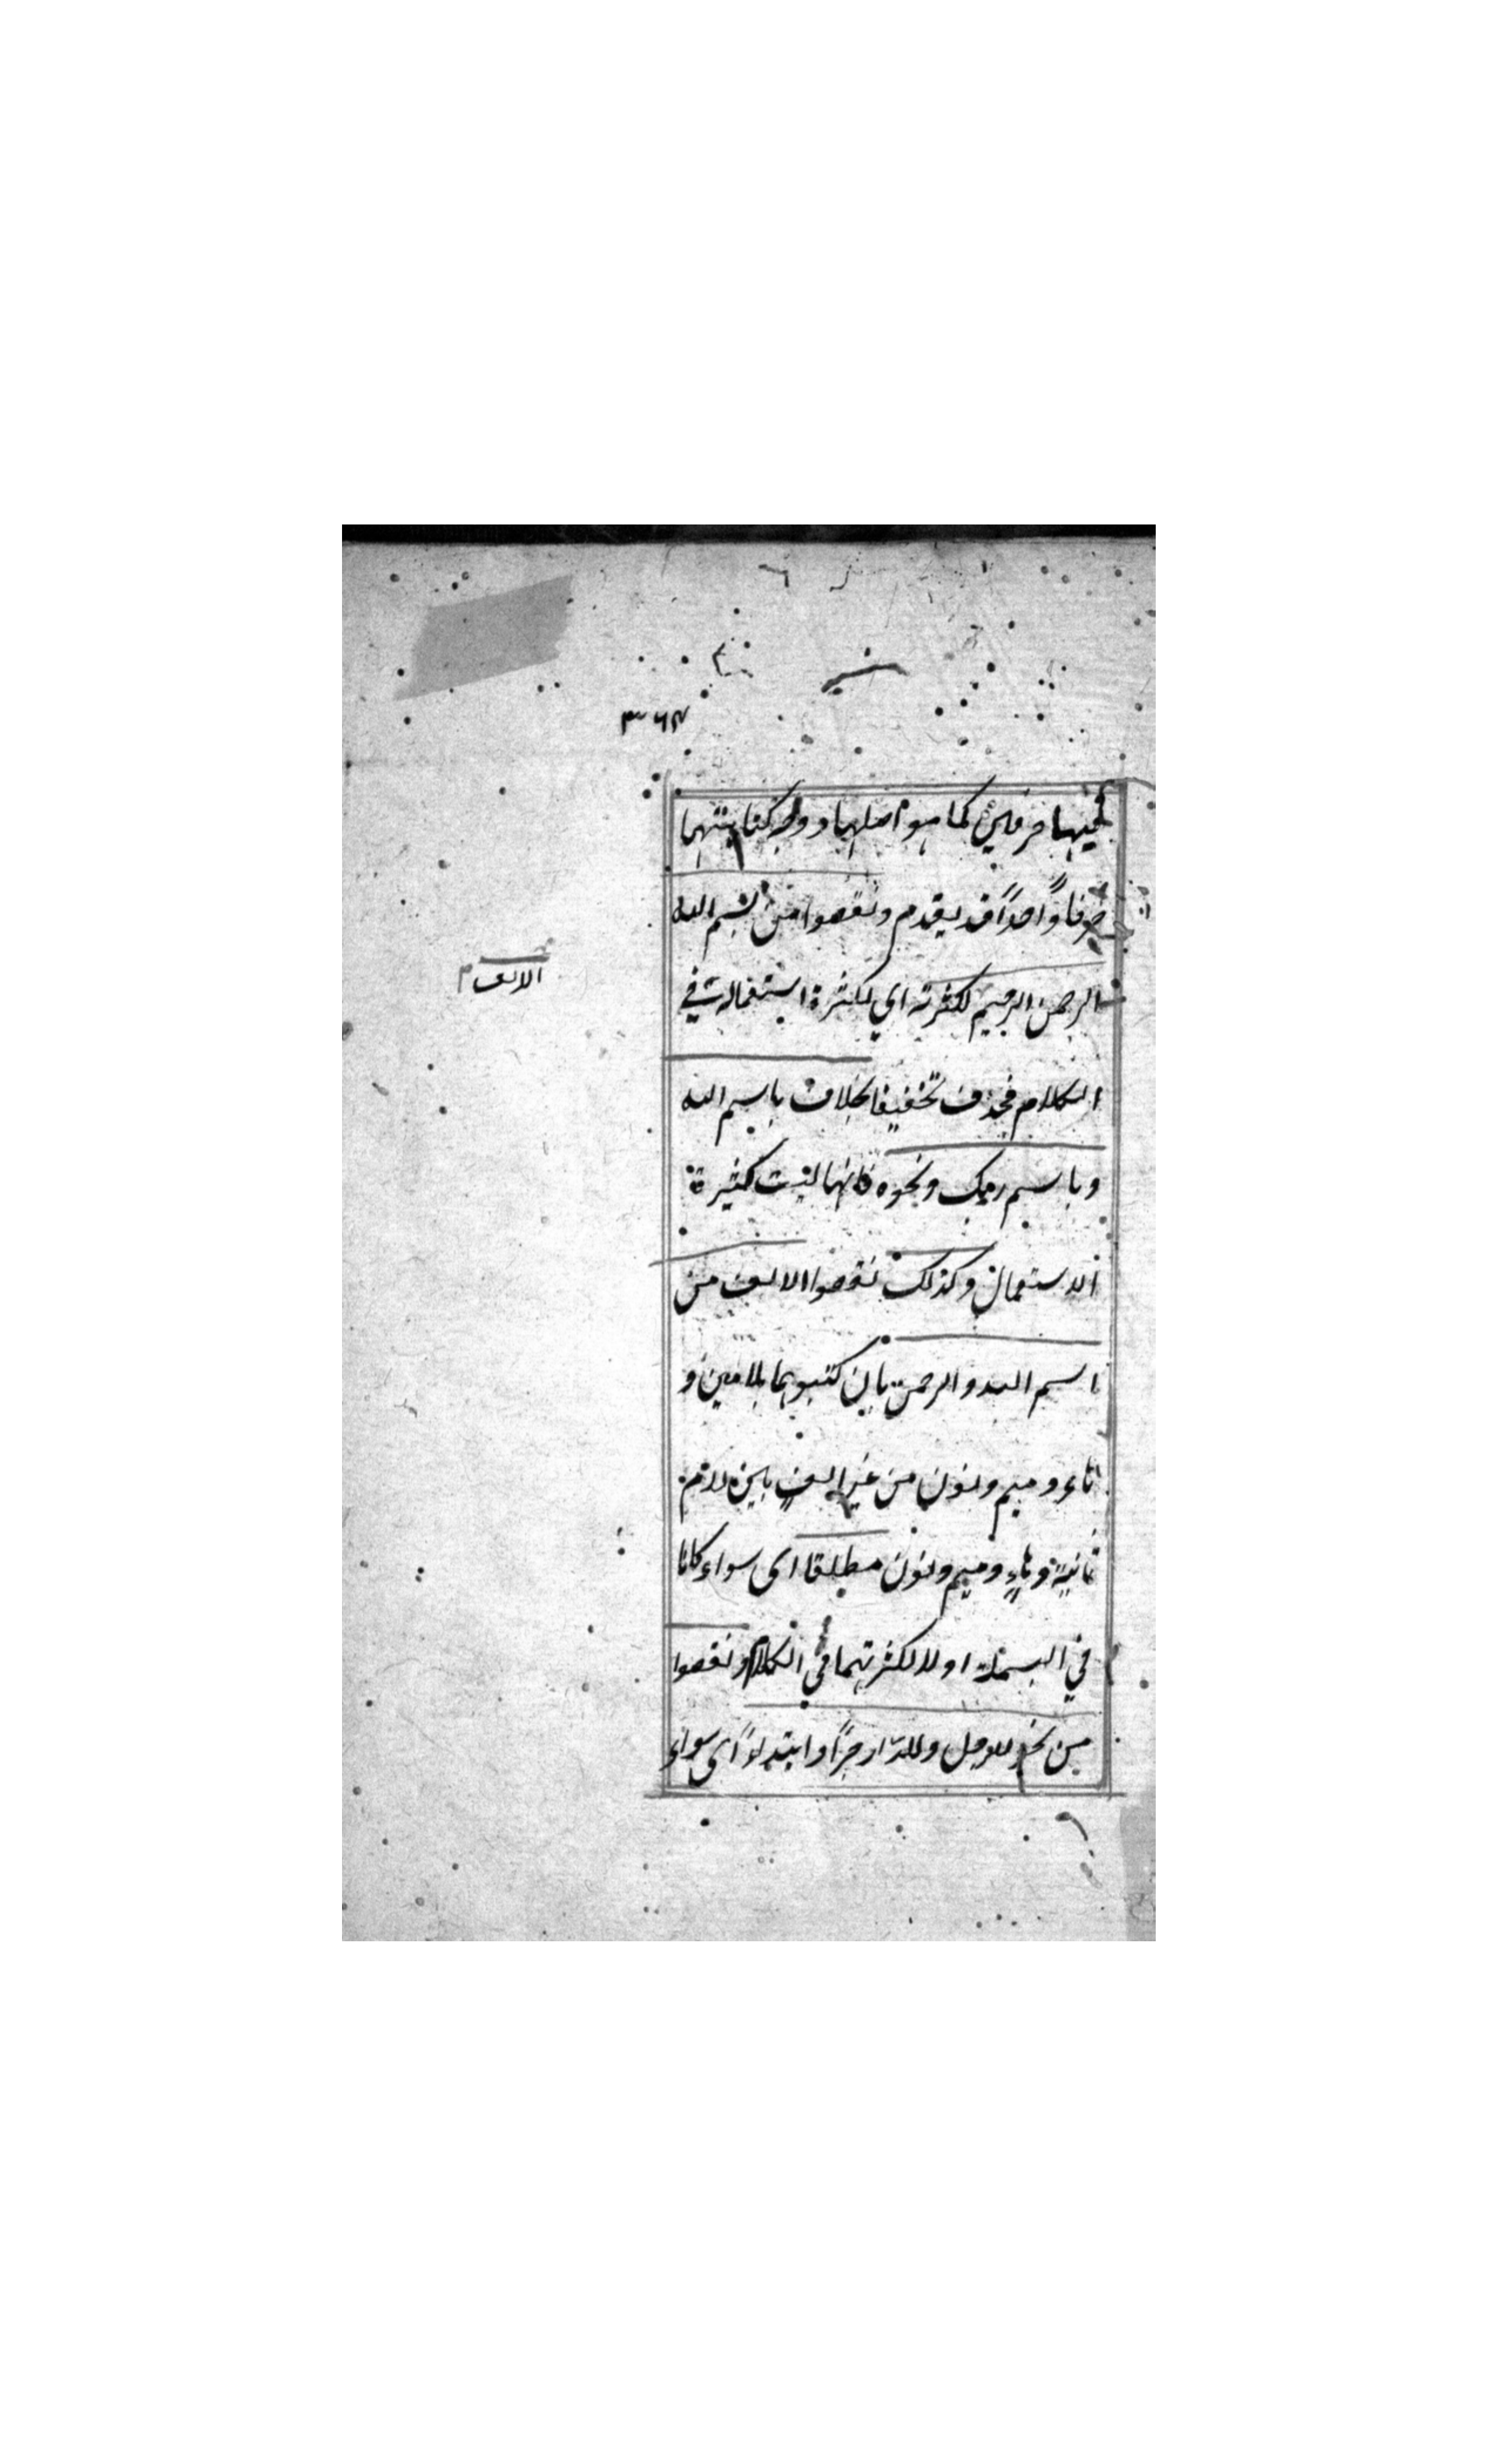 ٣٦٤
حرفين كما هو اصلهما ووجه كتابتهما
حرفا واحدا قد يقدم ونقصوا من بسم الله
الرحمن الرحيم لكثرته اي لكثرة استعماله في
الالف
الكلام فحذف تخفيفا بخلاف باسم الله
وباسم ربك ونحوه فانها ليست كثيرة
الاستعمال وكذلك نقصوا الالف من
اسم الله والرحمن بان كتبوهما بلامين و
وميم ونون من غير الف بين لام
ثانية وهاء وميم ونون مطلقا اى سواء كانا
في البسملة او لا لكثرتهما في الكلام ونقصوا
من نحو للرجل وللدار جرا وابتداء اى سواء